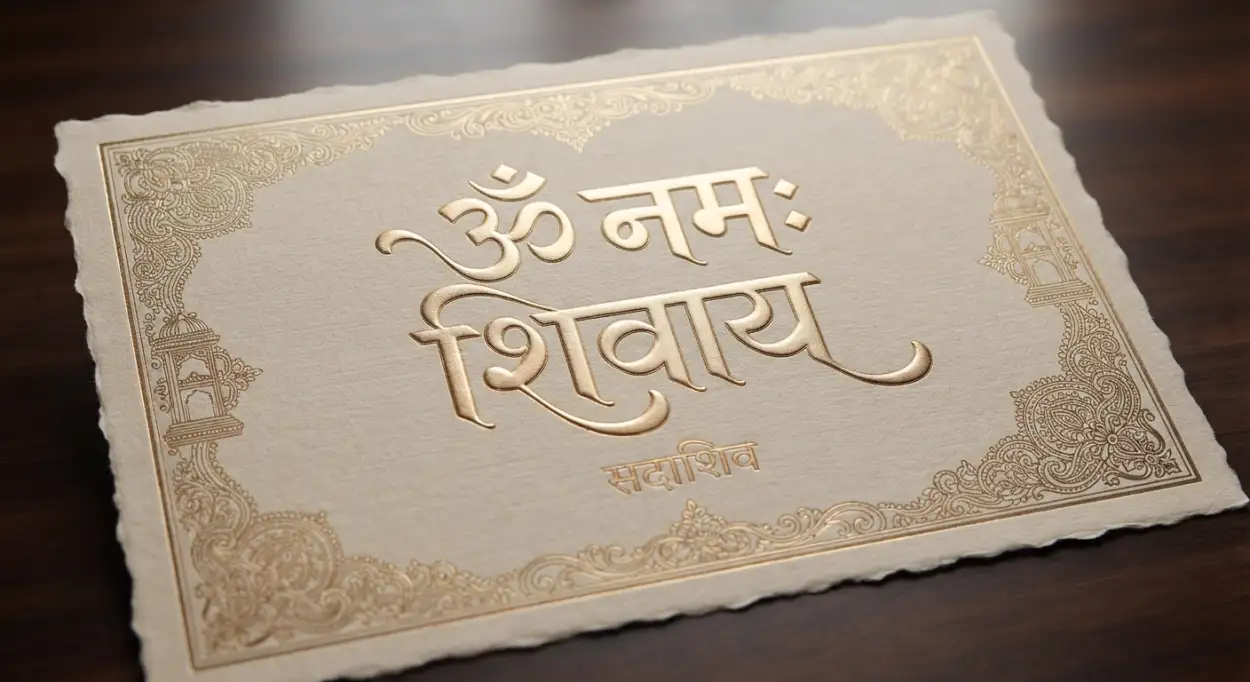 ॐ नमः
शिवाय
सदाशिव